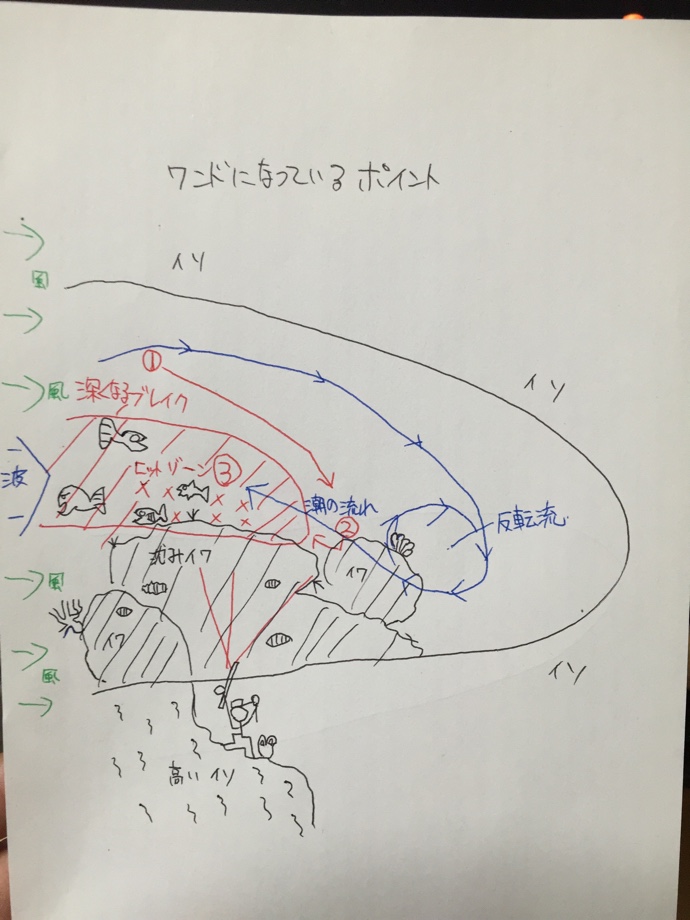 ワンドになっているポイント
イソ
風
①
イソ
風
深くなるブレイク
ヒットゾーン③
波
潮の流れ
②
反転流
沈みイワ
イワ
風
イワ
イソ
風
高いイソ